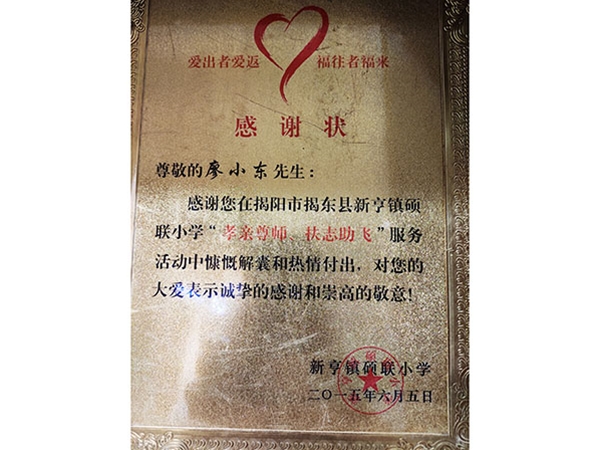 爱出者爱返 福往者福来
感谢状
尊敬的廖小东先生：
感谢您在揭阳市揭东县新亨镇硕
联小学“孝亲尊师、扶志助飞”服务
活动中慷慨解囊和热情付出，对您的
大爱表示诚挚的感谢和崇高的敬意！
新亨镇硕联小学
二〇一五年六月五日